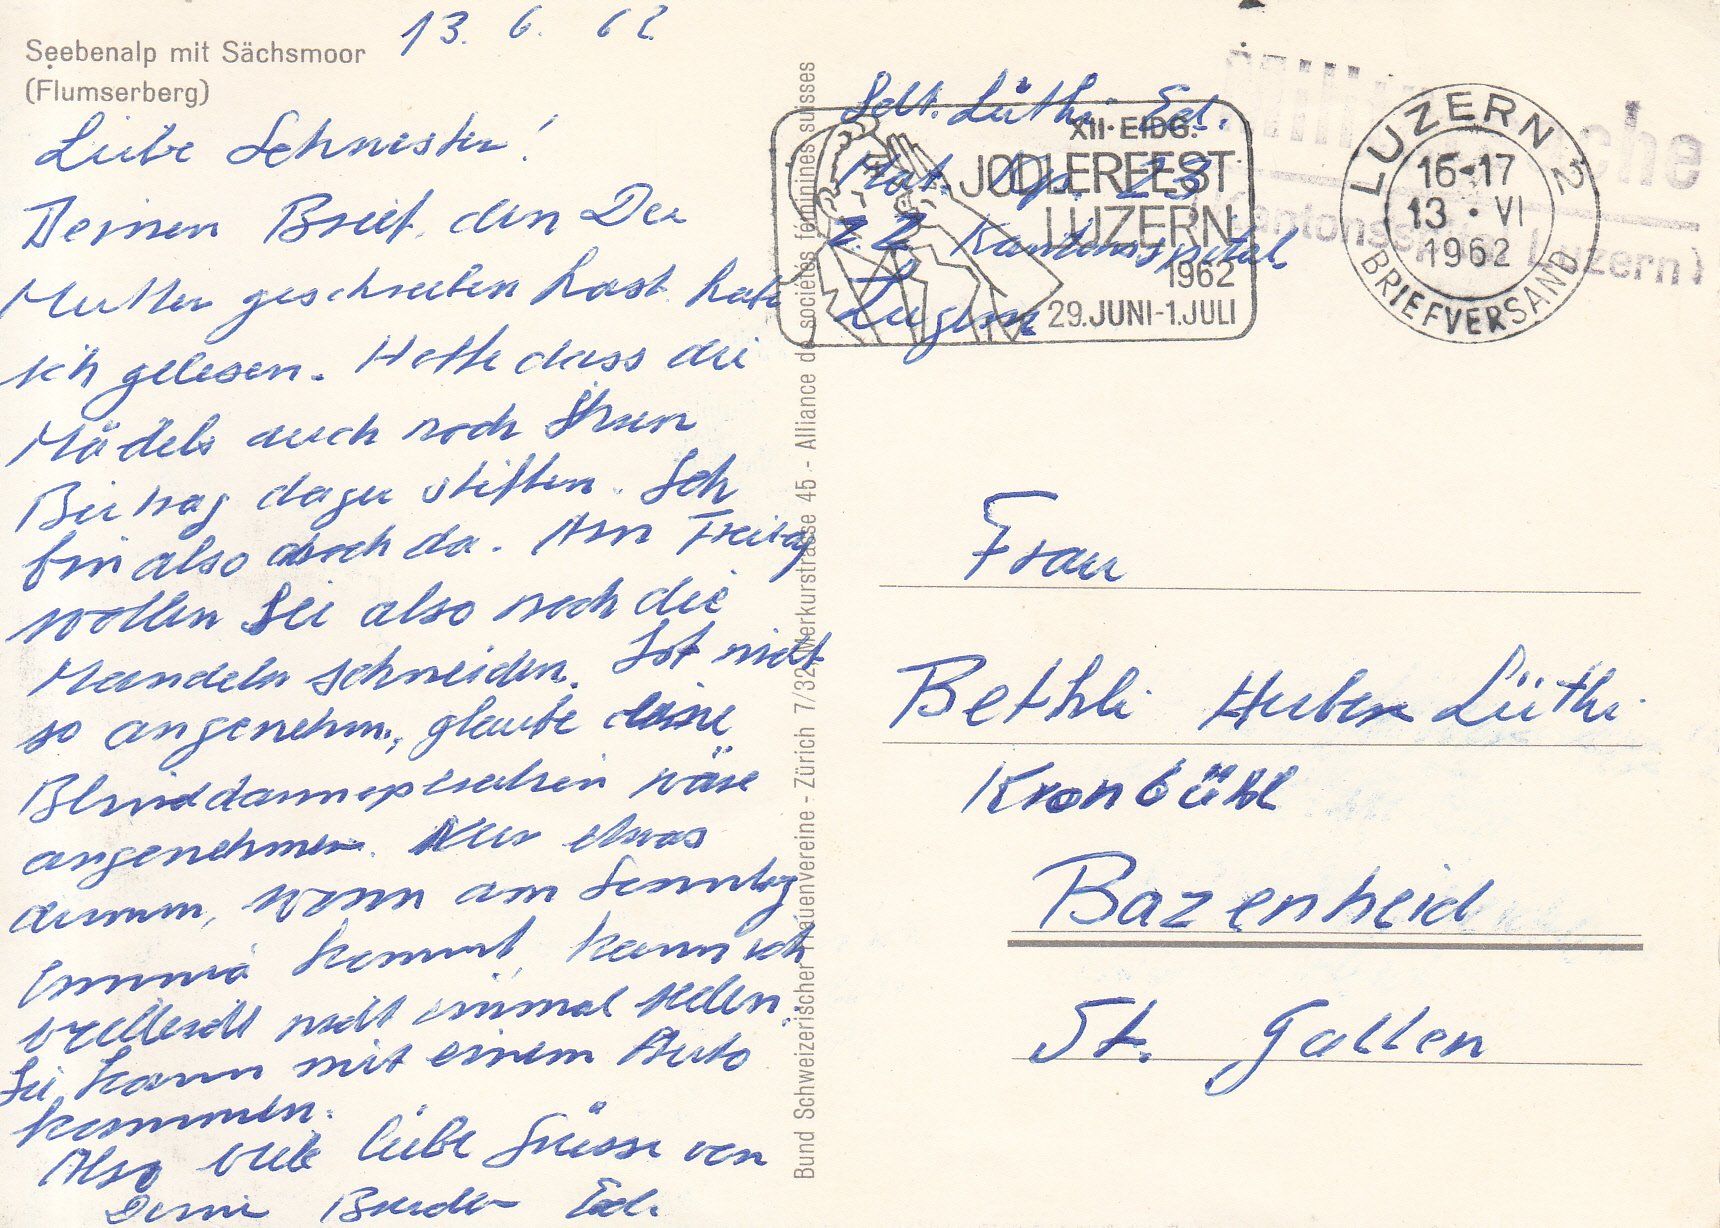 13. 6. 62
Seebenalp mit Sächsmoor
(Flumserberg)
Liebe Schwester!
Deinen Brief, den Du
Mutter geschrieben hast habe
ich gelesen. Hoffe dass die
Mädels auch noch Ihren
Beitrag dazu stiften. Ich
bin also doch da. Am Freitag
wollen Sie also noch die
Mandeln schneiden. Ist nicht
so angenehm, glaube eine
Blinddarmoperation wäre
angenehmer. Nur etwas
dumm, wenn am Sonntag
Emma kommt, kann ich
vielleicht nicht einmal reden.
Sie kann mit einem Auto
kommen.
Also viele liebe Grüsse von
Deine Bruder Ed.
Bund Schweizerischer Frauenvereine - Zürich 7/32, Merkurstrasse 45 - Alliance de sociétés féminines suisses
Sdt. Lüthi Ed.
Mat. Kp. 23
z. Z. Kantonsspital
Luzern
XII. EIDG.
JODLERFEST
LUZERN
1962
29. JUNI-1. JULI
LUZERN 2
16-17
13 • VI
1962
BRIEFVERSAND
Kantonsspital Luzern)
Frau
Bethli Huber Lüthi
Kronbühl
Bazenheid
St. Gallen